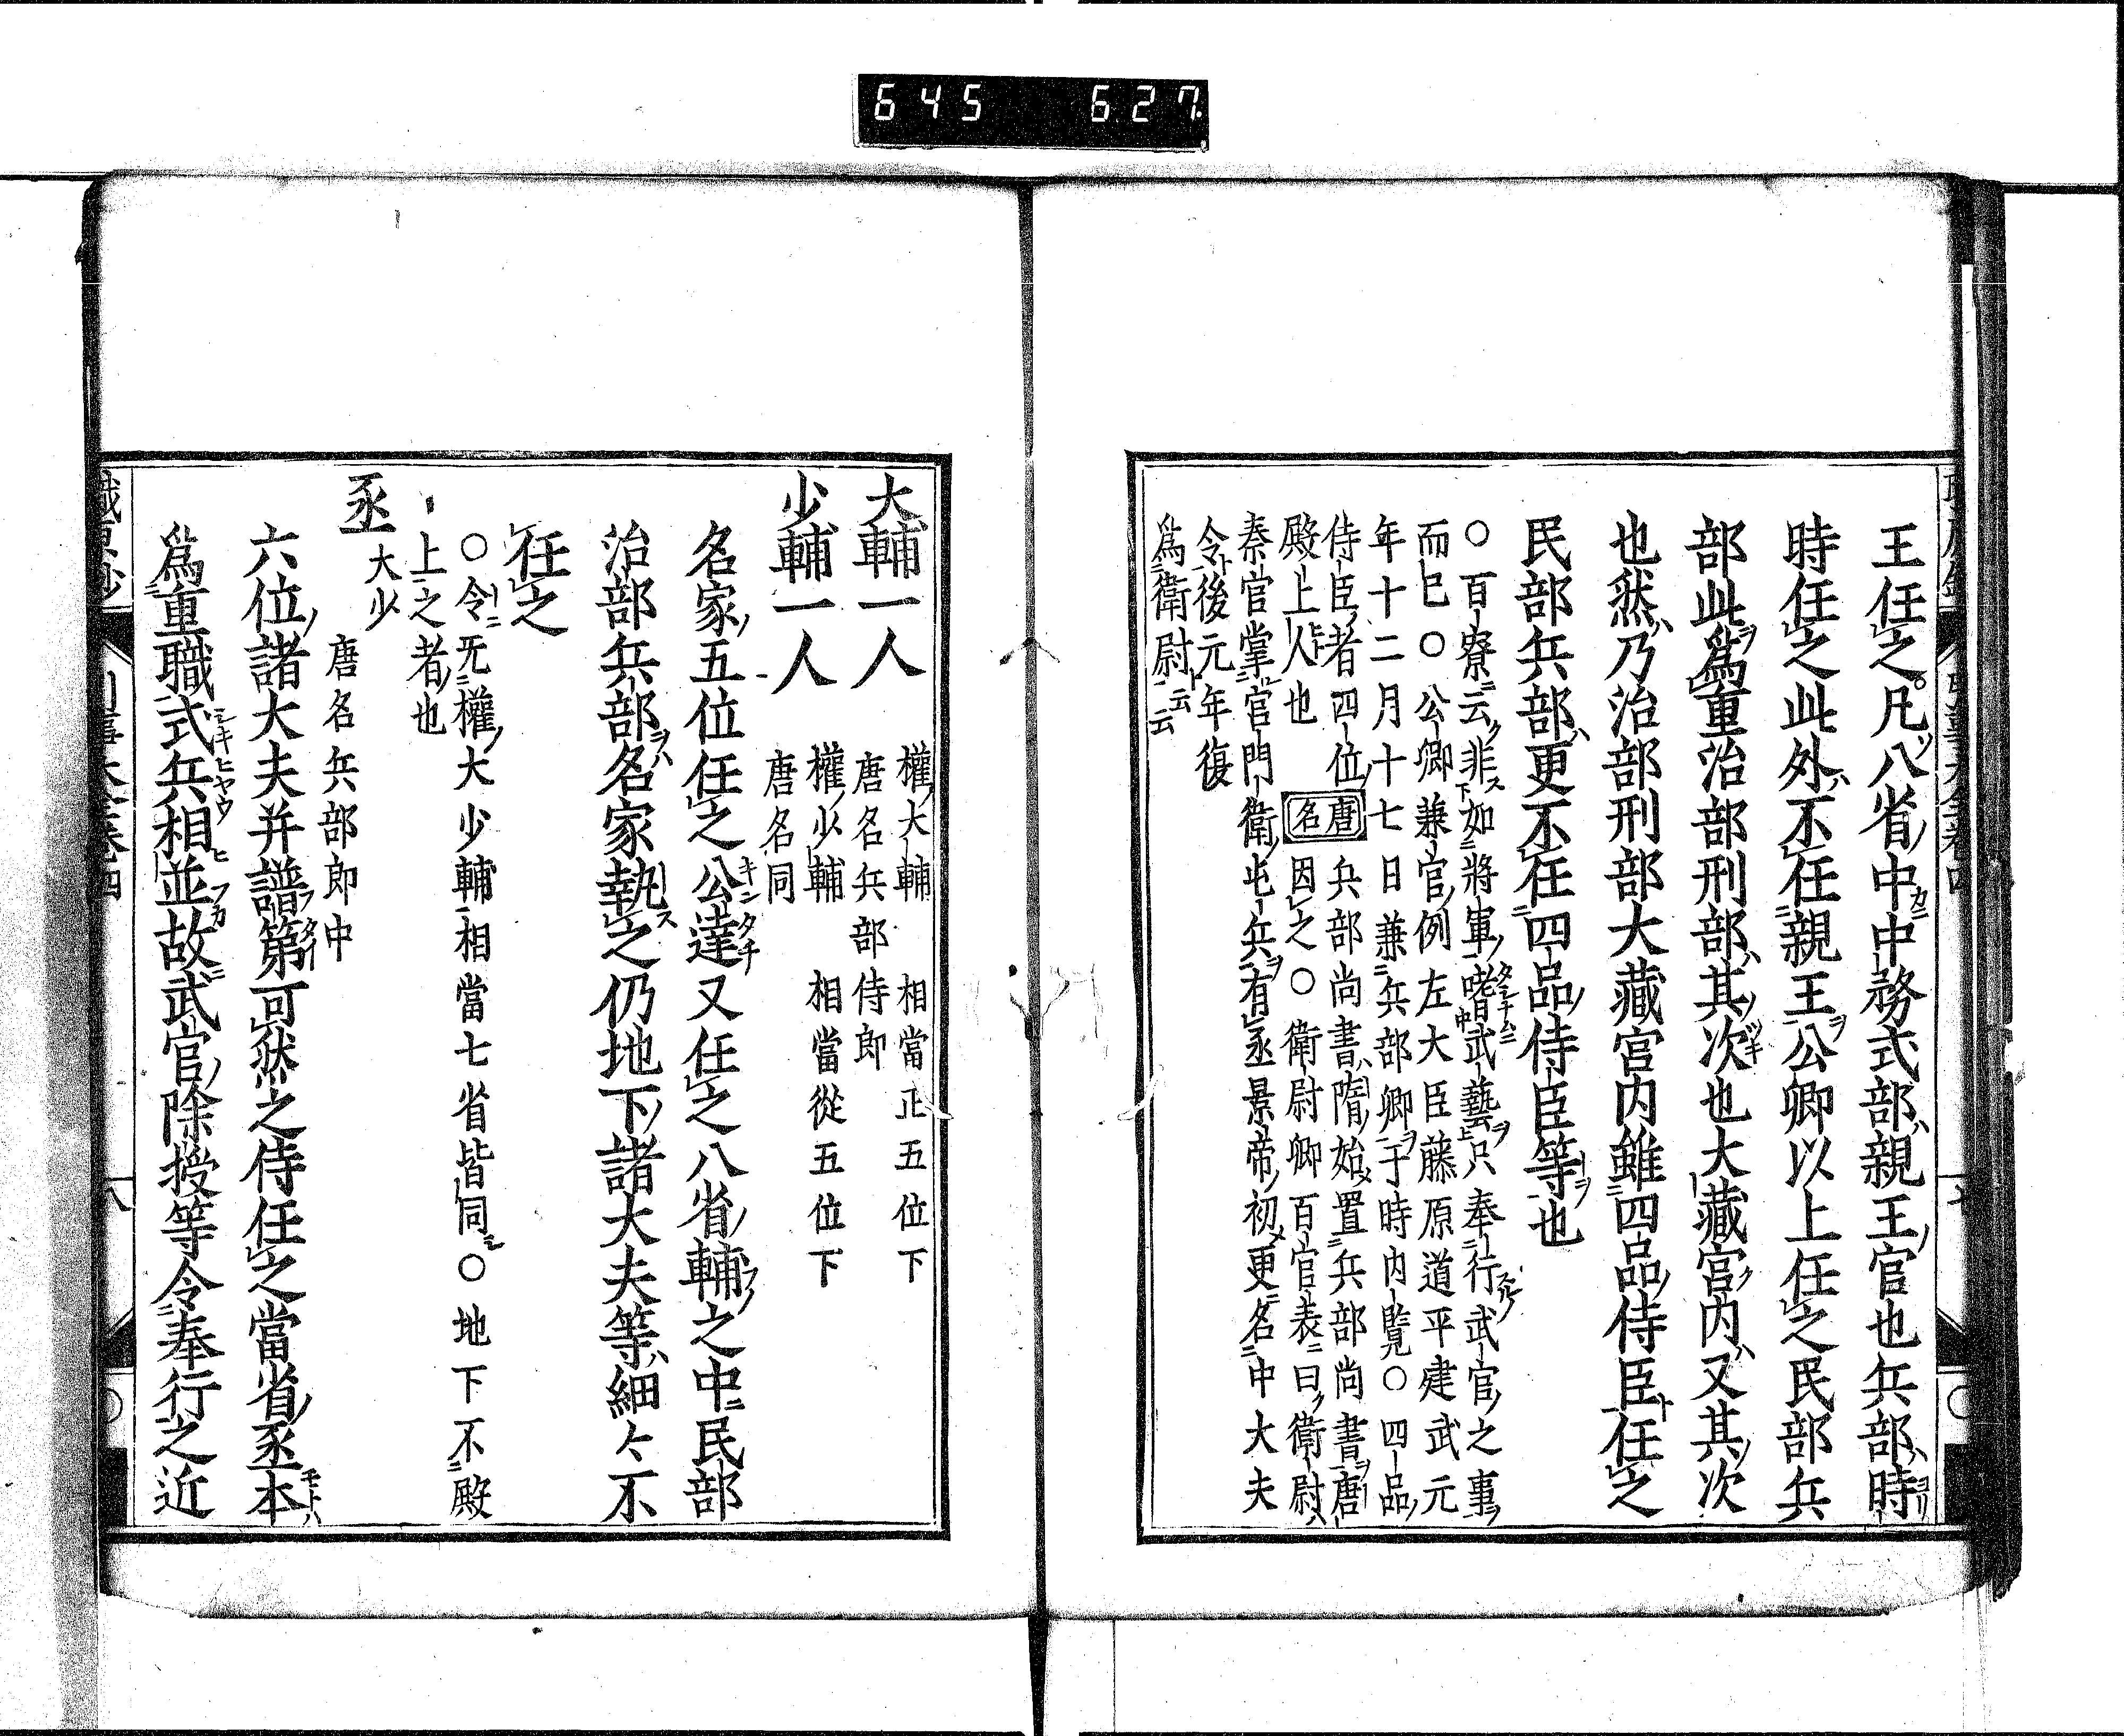 645 627.
王任之凡八省中中務式部親王官也兵部時
時任之此外不任親王公卿以上任之民部兵
部此爲重治部刑部其次也大藏宮内又其次
也然乃治部刑部大藏宮内雖四品侍臣任之
民部兵部更不任四品侍臣等也
○百寮云非如將軍嗜武藝只奉行武官之事
而已○公卿兼官例左大臣藤原道平建武元
年十二月十七日兼兵部卿于時内覽○四品
侍臣者四位
殿上人也
唐名
兵部尚書隋始置兵部尚書唐
因之○衛尉卿百官表曰衛尉
秦官掌宮門衛屯兵有丞景帝初更名中大夫
令後元年復
爲衛尉云云
大輔一人
權大輔 相當正五位下
唐名兵部侍郎
少輔一人
權少輔 相當從五位下
唐名同
名家五位任之公達又任之八省輔之中民部
治部兵部名家執之仍地下諸大夫等細々不
任之
○令无權大少輔相當七省皆同○地下不殿
上之者也
丞
大少
唐名兵部郎中
六位諸大夫并譜第可然之侍任之當省丞本
爲重職式兵相並故武官除授等令奉行之近